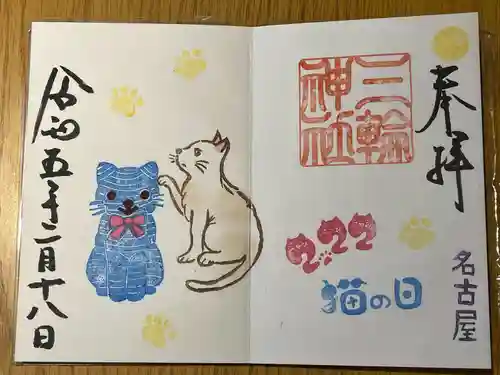 奉拝
名古屋
三輪
神社
2.22
猫の日
令和五年二月十八日